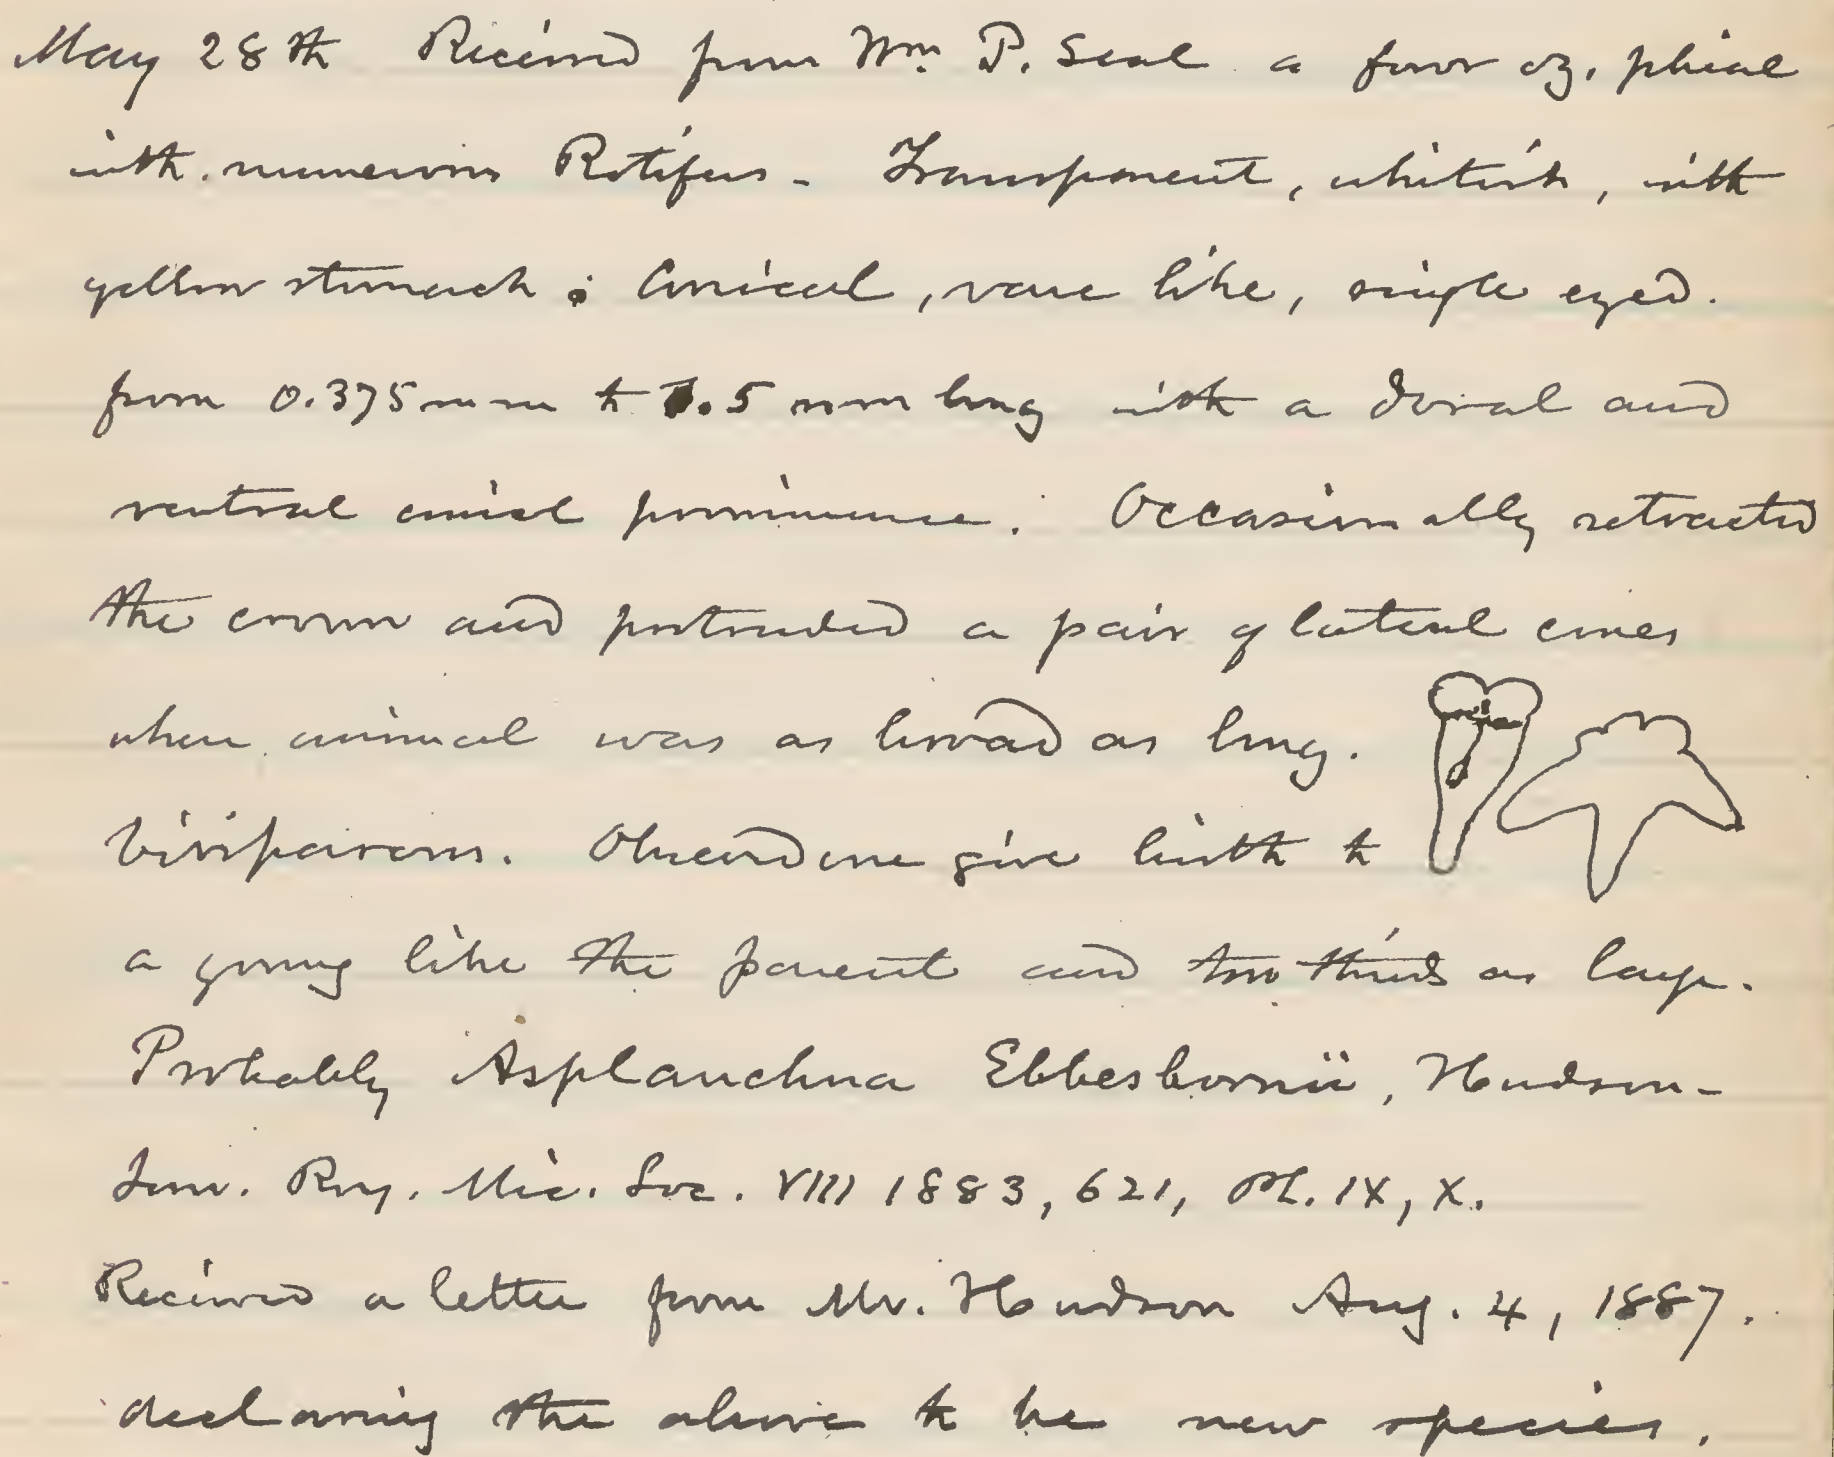 May 28th Received from Wm. P. Seal a four oz. phial
with numerous Rotifers - Transparent, whitish, with
yellow stomach; Conical, vase like, single eyed.
from 0.375 mm to 1.5 mm long with a dorsal and
ventral conical prominence. Occasionally retracted
the crown and protruded a pair of lateral cones
when animal was as broad as long.
Viviparous. Observed one give birth to
a young like the parent and two thirds as large.
Probably Asplanchna Ebbesbornii, Hudson -
Jour. Roy. Mic. Soc. VIII 1883, 621, Pl. IX, X.
Received a letter from Mr. Hudson Aug. 4, 1887.
declaring the above to be new species.